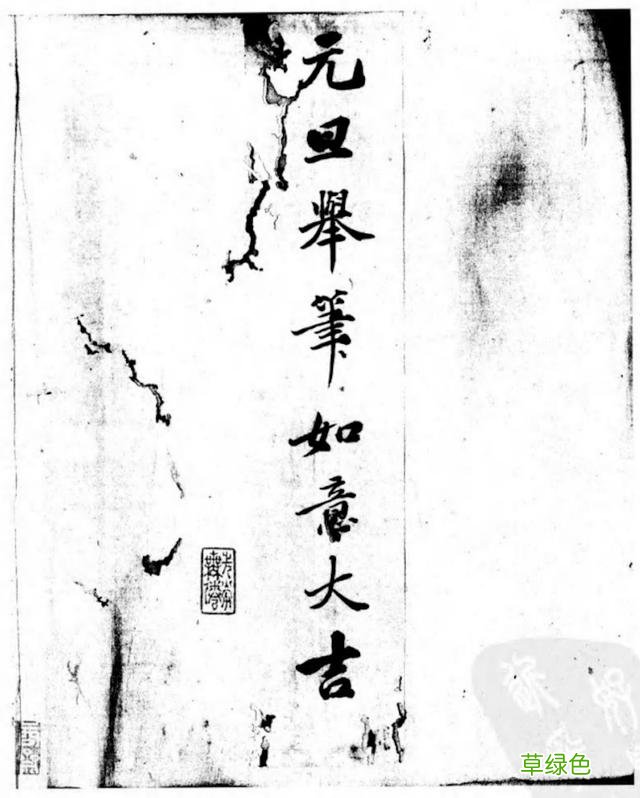 元旦舉筆如意大吉
草绿色